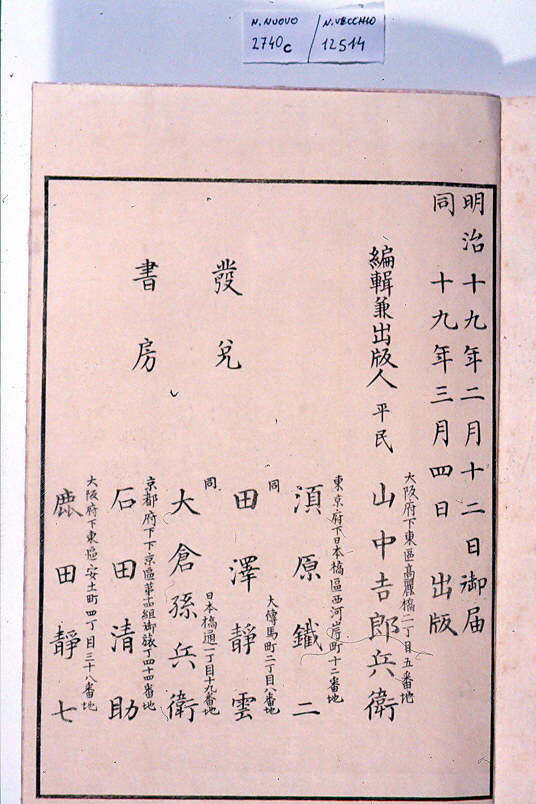 N. NUOVO
2740c
N. VECCHIO
12514
明治十九年二月十二日御届
同十九年三月四日出版
大阪府下東區高麗橋二丁目五番地
編輯兼出版人 平民 山中吉郎兵衛
東京府下日本橋區西河岸町十二番地
須原鐵二
同 大傳馬町二丁目八番地
發兌
田澤靜雲
同 日本橋通一丁目十九番地
大倉孫兵衛
京都府下下京區第 組御 丁四十四番地
書房
石田清助
大阪府下東區安土町四丁目三十八番地
鹿田靜七